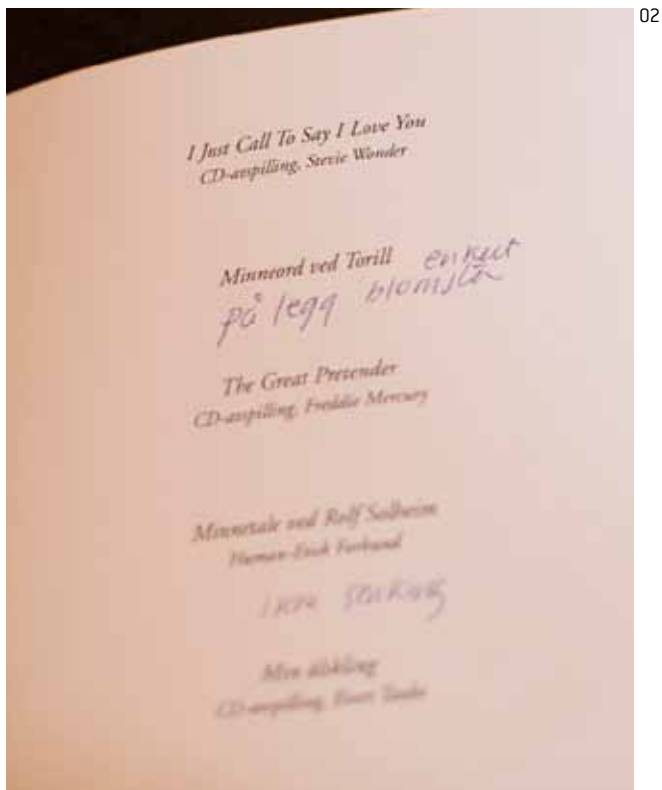 02
I Just Call To Say I Love You
CD-avspilling, Stevie Wonder
Minneord ved Torill enkelt
på legg blomster
The Great Pretender
CD-avspilling, Freddie Mercury
Minnetale ved Rolf Solheim
Human-Etisk Forbund
Ikke senking
Min älskling
CD-avspilling, Evert Taube